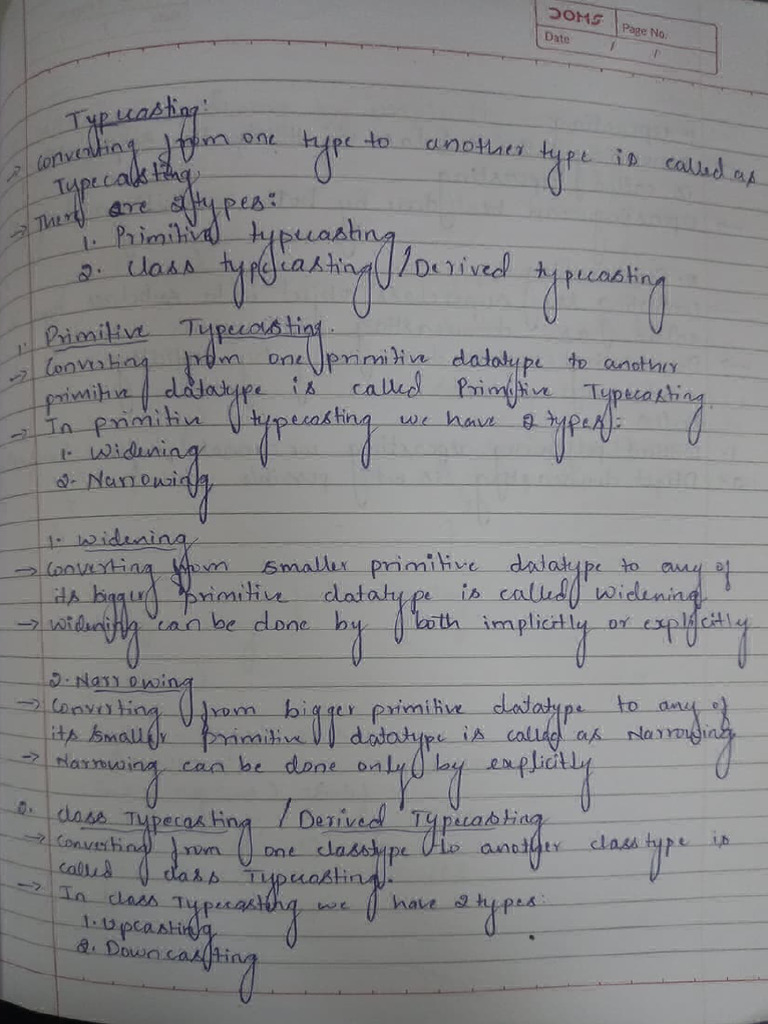 DOMS
Page No.
Date / /
Typecasting:
→ Converting from one type to another type is called as
Typecasting
→ There are 2 types:
1. Primitive typecasting
2. Class typecasting / Derived typecasting
1. Primitive Typecasting.
→ Converting from one primitive datatype to another
primitive datatype is called Primitive Typecasting.
→ In primitive typecasting we have 2 types:
1. Widening
2. Narrowing
1. Widening
→ Converting from smaller primitive datatype to any of
its bigger primitive datatype is called widening.
→ Widening can be done by both implicitly or explicitly
2. Narrowing
→ Converting from bigger primitive datatype to any of
its smaller primitive datatype is called as Narrowing
→ Narrowing can be done only by explicitly
2. Class Typecasting / Derived Typecasting
→ Converting from one classtype to another class type is
called class Typecasting.
→ In class Typecasting we have 2 types:
1. Upcasting
2. Downcasting